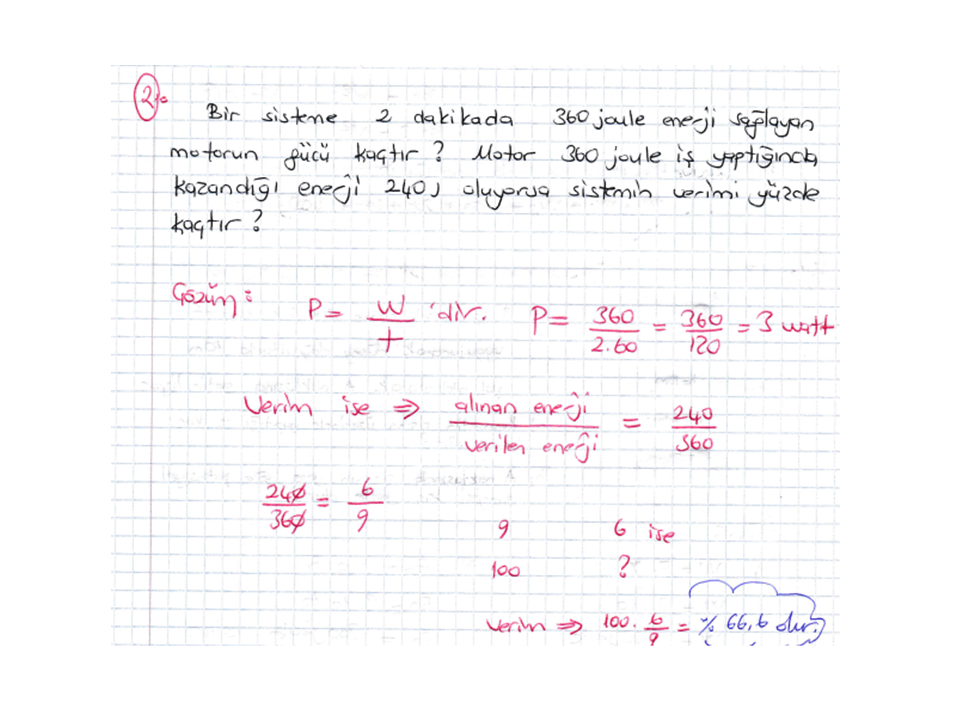 2)-
Bir sisteme 2 dakikada 360 joule enerji sağlayan
motorun gücü kaçtır? Motor 360 joule iş yaptığında
kazandığı enerji 240 J oluyorsa sistemin verimi yüzde
kaçtır?
Çözüm: P = W / t 'dir. P = 360 / 2.60 = 360 / 120 = 3 watt
Verim ise ⇒ alınan enerji / verilen enerji = 240 / 360
240 / 360 = 6 / 9
9 6 ise
100 ?
Verim ⇒ 100 . 6 / 9 = % 66,6 dır.